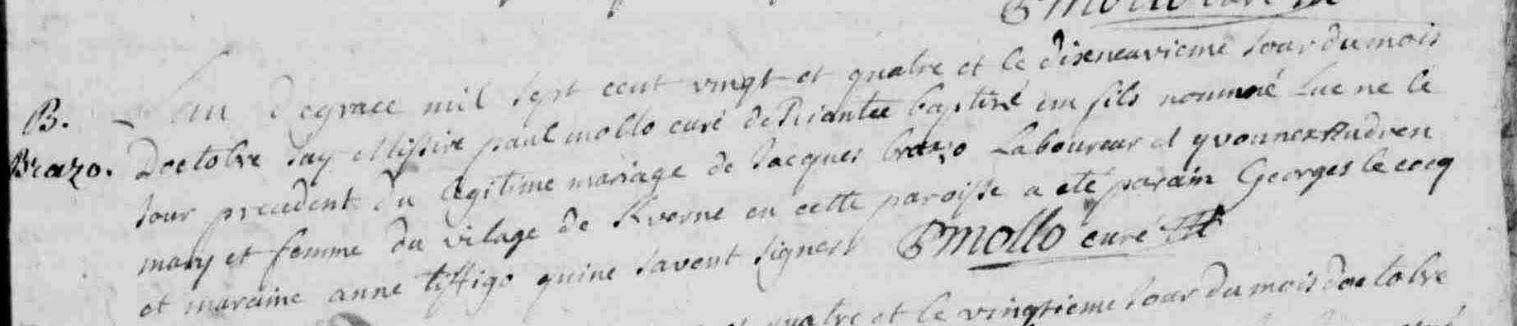 PMollo curé
B. Lan degrace mil sept cent vingt et quatre et le diseneuvieme Jour du mois
Brazo. Doctobre Jay Missire paul mollo curé de Riantec baptisé un fils nommé Luc ne le
Jour precedent du legitime mariage de Jacques brazo Laboureur et yvonne Audren
mary et femme du vilage de Kverne en cette paroisse a eté parain Georges le cocq
et maraine anne tiffigo quine savent signer PMollo curé
quatre et le vingtieme Jour du mois doctobre